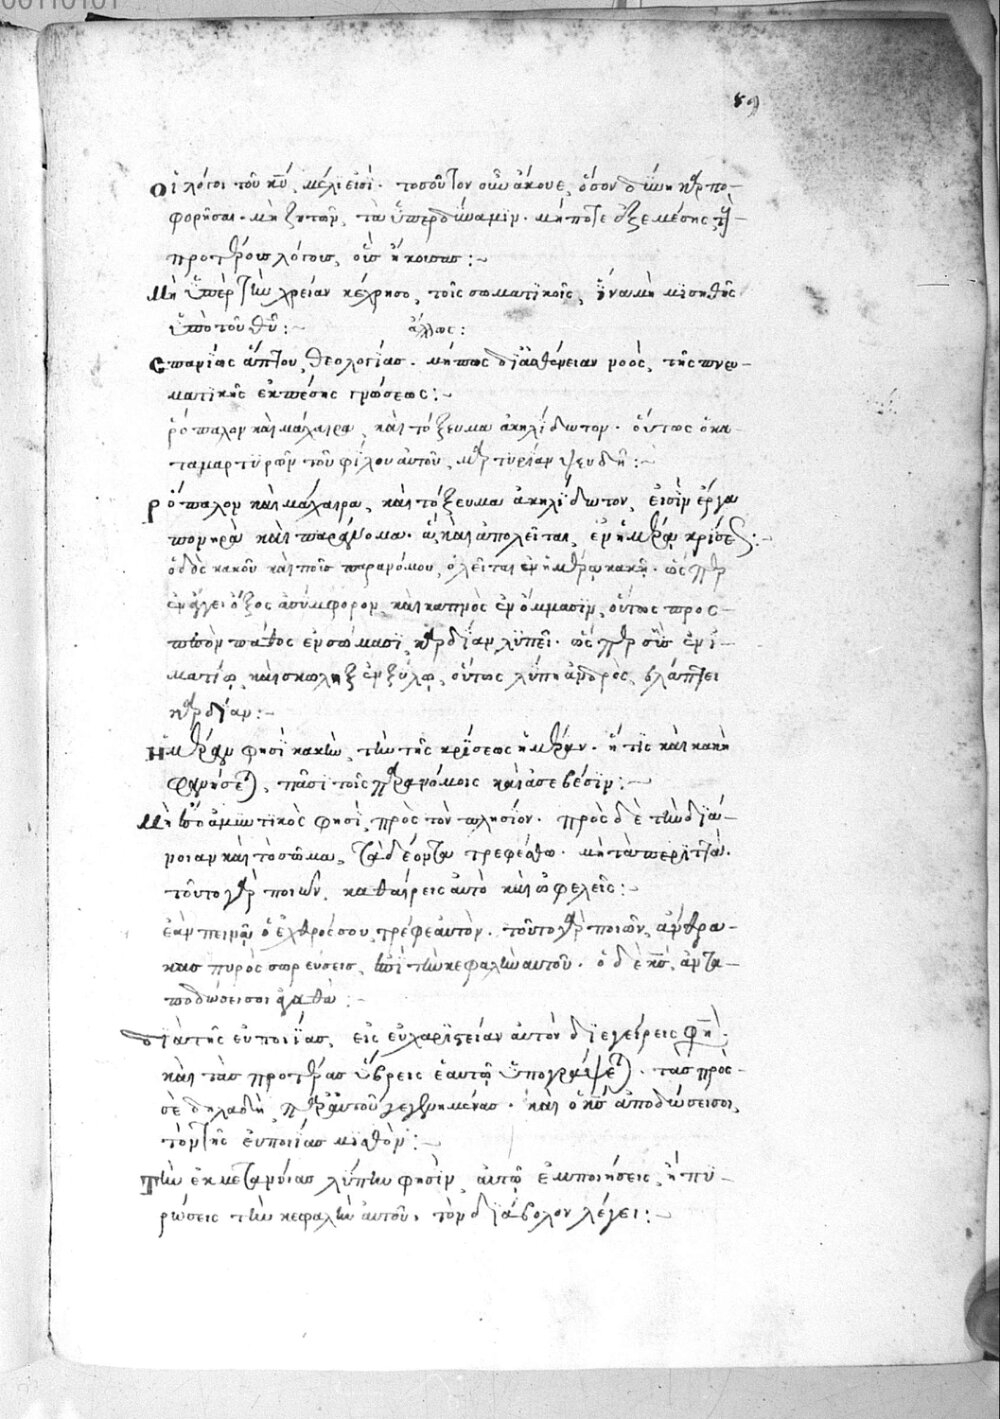 Οἱ λόγοι τοῦ κυ, μέλι εἰσί. τοσοῦτον οὖν ἄκουε, ὅσον δύνῃ καρπο-
φορῆσαι. μὴ ζητῶν, τὰ ὑπερ δύναμιν. μήποτε ἐξεμέσῃς τῇ
προτέροις λόγοις, οἷς ἤκουσας:~
Μὴ ὑπὲρ τὴν χρείαν κέχρησο, τοῖς σωματικοῖς, ἵνα μὴ μισηθῇς
ὑπὸ τοῦ θυ:~ ἄλλως:
Σπανίως ἅπτου θεολογίας. μήπως δι ἀσθένειαν νοὸς, τῆς πνευ-
ματικῆς ἐκπέσῃς γνώσεως:~
ῥόπαλον καὶ μάχαιρα, καὶ τόξευμα ἀκηλίδωτον. οὕτως ὁ κα-
ταμαρτυρῶν τοῦ φίλου αὐτοῦ, μαρτυρίαν ψευδῆ:~
Ρόπαλον καὶ μάχαιρα, καὶ τόξευμα ἀκηλίδωτον, εἰσὶν ἔργα
πονηρὰ καὶ παράνομα. ἃ καὶ ἀπολεῖται, ἐν ἡμέρᾳ κρίσεως:~
ὁδὸς κακοῦ καὶ ποῦς παρανόμου, ὀλεῖται ἐν ἡμέρᾳ κακῇ. ὥσπερ
ἕλκει ὄξος ἀσύμφορον, καὶ καπνὸς ἐν ὄμμασιν, οὕτως προσ-
πεσὸν πάθος ἐν σώματι καρδίαν λυπεῖ. ὥσπερ σὴς ἐν ἱ-
ματίῳ, καὶ σκώληξ ἐν ξύλῳ, οὕτως λύπη ἀνδρὸς, βλάπτει
καρδίαν:~
Ημέραν φησὶ κακὴν, τὴν τῆς κρίσεως ἡμέραν. ἥτις καὶ κακὴ
φανήσεται, πᾶσι τοῖς παρανόμοις καὶ ἀσεβέσιν:~
Μὴ ἔσο ἀμυντικὸς φησὶ, πρὸς τὸν πλησίον. πρὸς δὲ τὴν διά-
νοιαν καὶ τὸ σῶμα, τὰ δέοντα τρεφέσθω. μὴ τὰ περιττά.
τοῦτο γὰρ ποιῶν, καθαίρεις αὐτὸ καὶ ὠφελεῖς:~
ἐὰν πεινᾷ ὁ ἐχθρός σου, τρέφε αὐτὸν. τοῦτο γὰρ ποιῶν, ἄνθρα-
κας πυρὸς σωρεύσεις, ἐπὶ τὴν κεφαλὴν αὐτοῦ. ὁ δὲ κς, ἀντα-
ποδώσει σοι ἀγαθὰ:~
διὰ τῆς εὐποιΐας, εἰς εὐχαριστείαν αὐτὸν διεγείρεις φη.
καὶ τὰς προτέρας ὕβρεις ἑαυτῷ ὑπογράψεται. τὰς πρὸς-
σὲ δηλαδὴ, παρ αὐτοῦ γεγενημένας. καὶ ὁ κς ἀποδώσει σοι,
τὸν τῆς εὐποιΐας μισθὸν:~
Τὴν ἐκ μετανοίας λύπην φησὶν, αὐτῷ ἐμποιήσεις, ἢ πυ-
ρώσεις τὴν κεφαλὴν αὐτοῦ, τὸν διάβολον λέγει:~